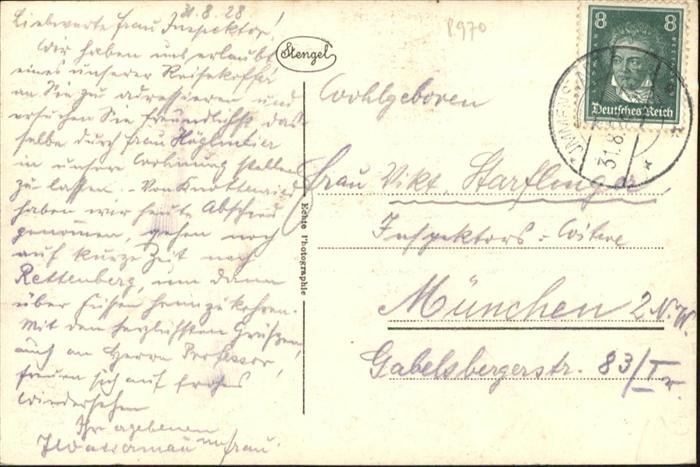 31.8.28
Liebwerte Frau Inspektor!
Wir haben uns erlaubt
eines unserer Reisekoffer
an Sie zu adressieren und
ersuchen Sie freundlichst das-
selbe durch Frau
in unsere Wohnung stellen
zu lassen. Von
haben wir heute Abschied
genommen, gehen noch
auf kurze Zeit nach
Rettenberg, um dann
über Füssen heimzukehren.
Mit den herzlichsten Grüßen,
auch an Herrn Professor,
freuen sich auf frohes
Wiedersehen
Ihr ergebener
u. Frau.
P.970
Stengel
Echte Photographie
8 8
Deutsches Reich
31.8.
Wohlgeboren
Frau Vikt. Starflinger
Inspektors-Witwe
München 2 N.W.
Gabelsbergerstr. 83/I r.